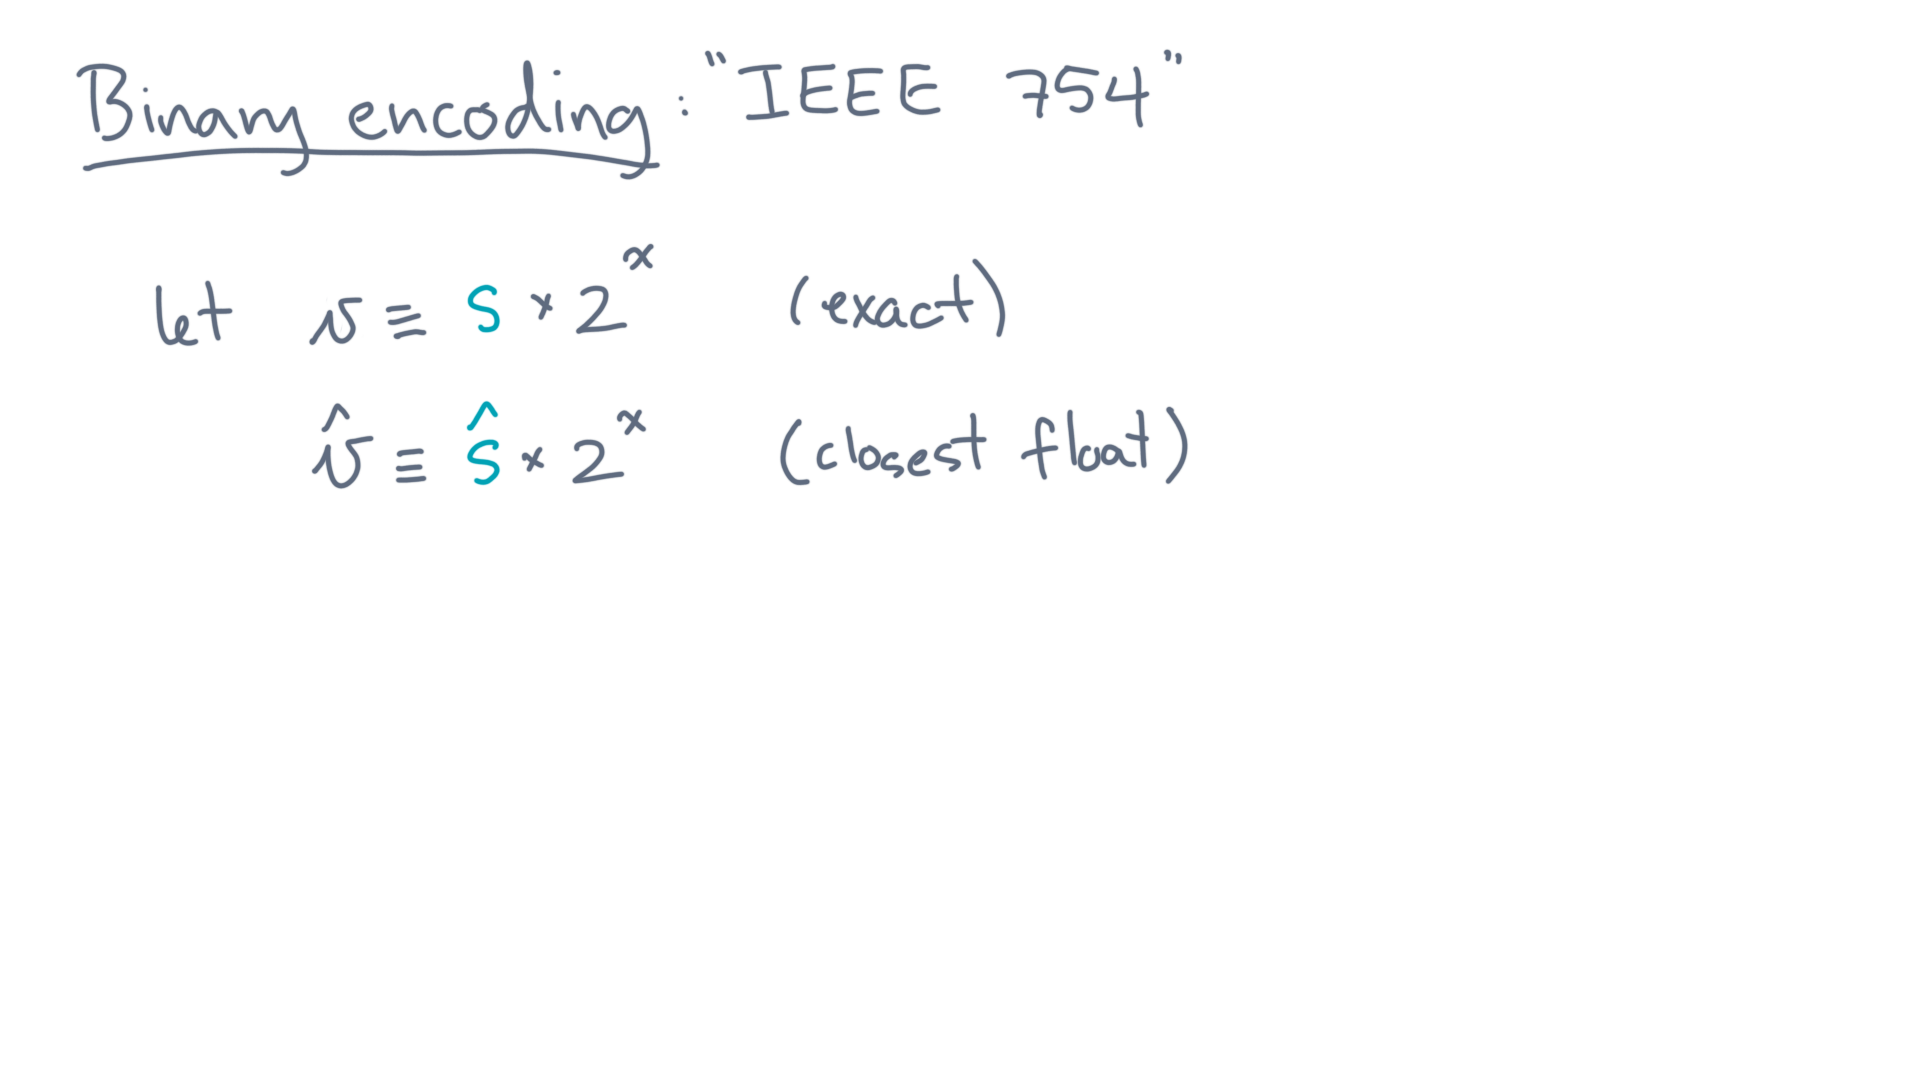 Binary encoding: "IEEE 754"
let v ≡ s × 2^x (exact)
v̂ ≡ ŝ × 2^x (closest float)